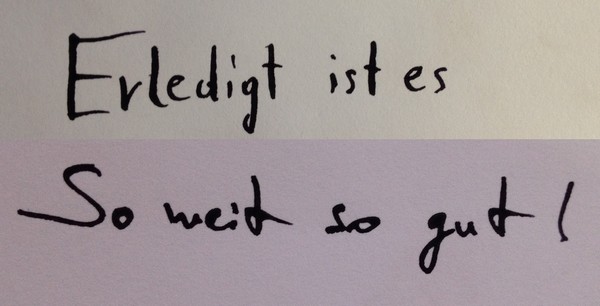 Erledigt ist es
So weit so gut!